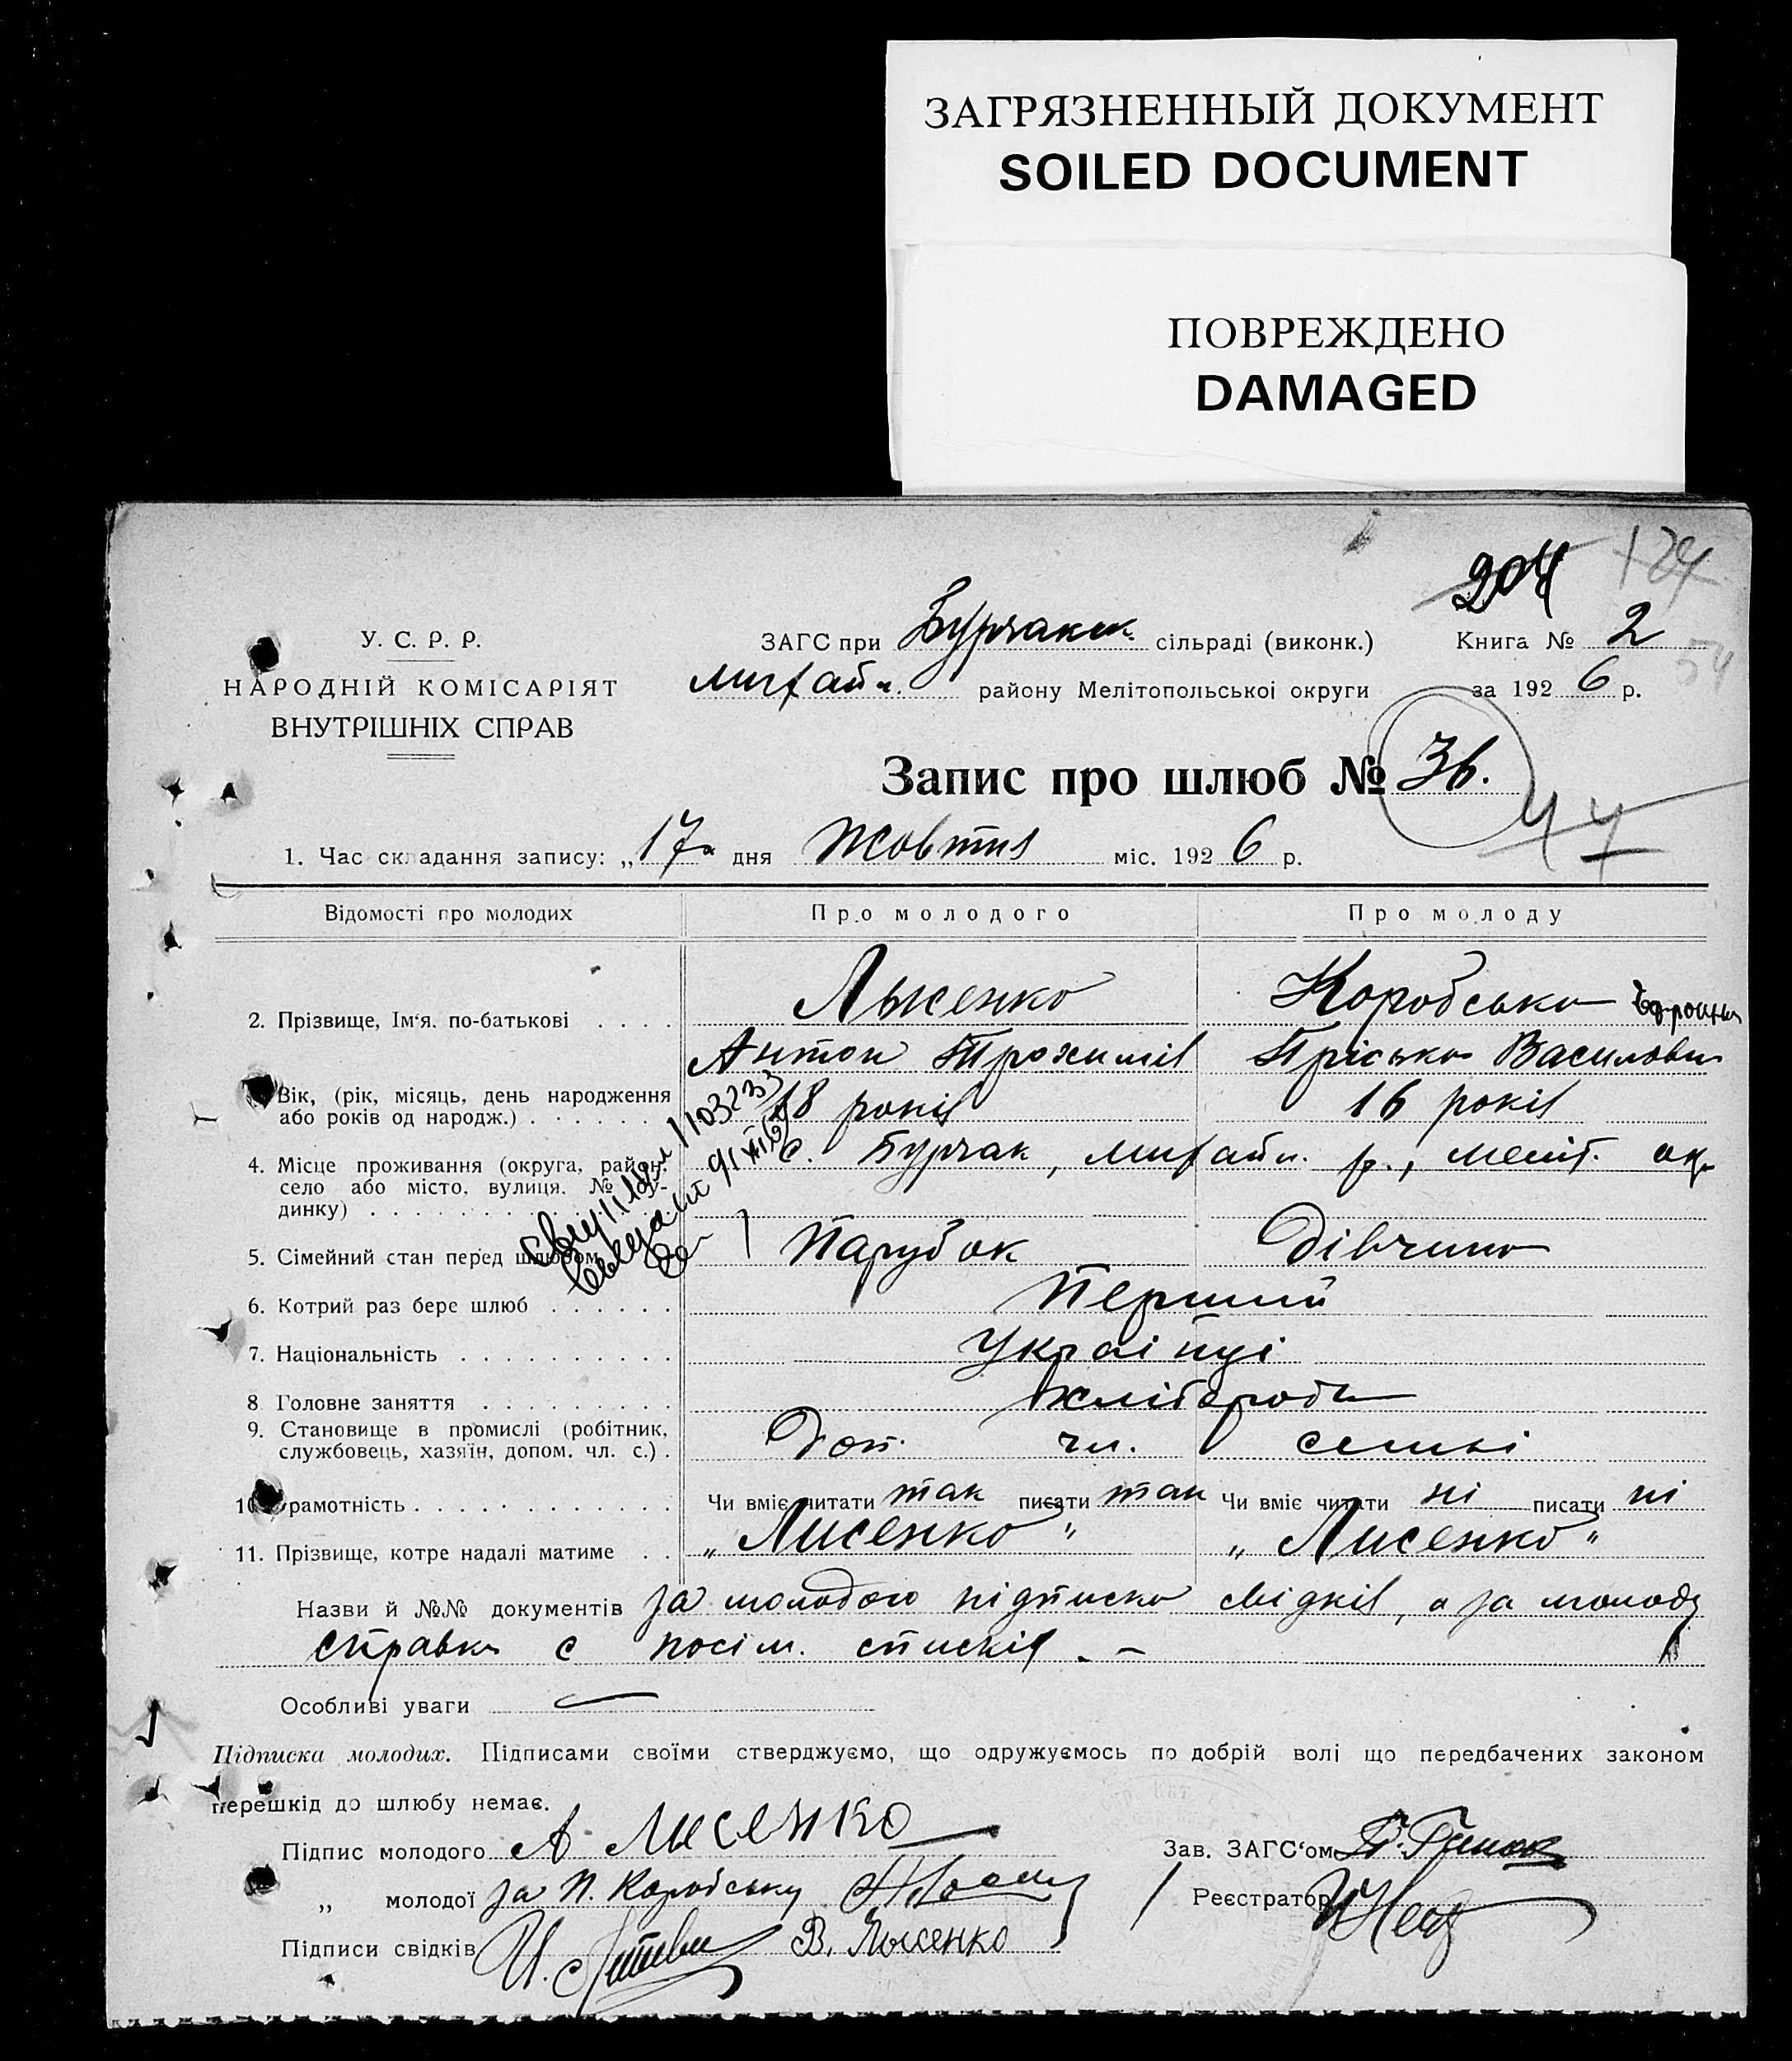 ЗАГРЯЗНЕННЫЙ ДОКУМЕНТ
SOILED DOCUMENT
ПОВРЕЖДЕНО
DAMAGED
204 124
У. С. Р. Р.
НАРОДНІЙ КОМІСАРІЯТ
ВНУТРІШНІХ СПРАВ
ЗАГС при Бурчакск. сільраді (виконк.) Книга № 2
54
Михайл. району Мелітопольської округи за 192 6 р.
Запис про шлюб № 36.
44
1. Час складання запису: „ 17 дня Жовтня міс. 192 6 р.
Відомості про молодих Про молодого Про молоду
2. Прізвище, Ім‘я. по-батькові . . . . Лысенко Коробсько
Антон Трохимів Пріська Василовна
Вік, (рік, місяць, день народження
або років од народж.) . . . . . . 18 років 16 років
4. Місце проживання (округа, район,
село або місто, вулиця. № бу-
динку) . . . . . . . . . . с. Бурчак, Михайл. р., меліт. ок.
5. Сімейний стан перед шлюбом Парубок Дівчина
6. Котрий раз бере шлюб . . . . . . Перший
7. Національність . . . . . . . . . . Украінці
8 Головне заняття . . . . . . . . . хліборобы
9. Становище в промислі (робітник,
службовець, хазяїн, допом. чл. с.) . Доп. чл. семьі
10. Грамотність . . . . . . . . . . . . Чи вміє читати так писати так Чи вміє читати ні писати ні
11. Прізвище, котре надалі матиме . . „Лисенко" „Лисенко"
Назви й №№ документів за молодого підписка свідків, а за молоду
справка с посім. списків. –
Особливі уваги —
Підписка молодих. Підписами своїми стверджуємо, що одружуємось по добрій волі що передбачених законом
перешкід до шлюбу немає.
Підпис молодого А Лысенко Зав. ЗАГС‘ом
„ молодої за П. Коробську Реєстратор
Підписи свідків В. Лысенко